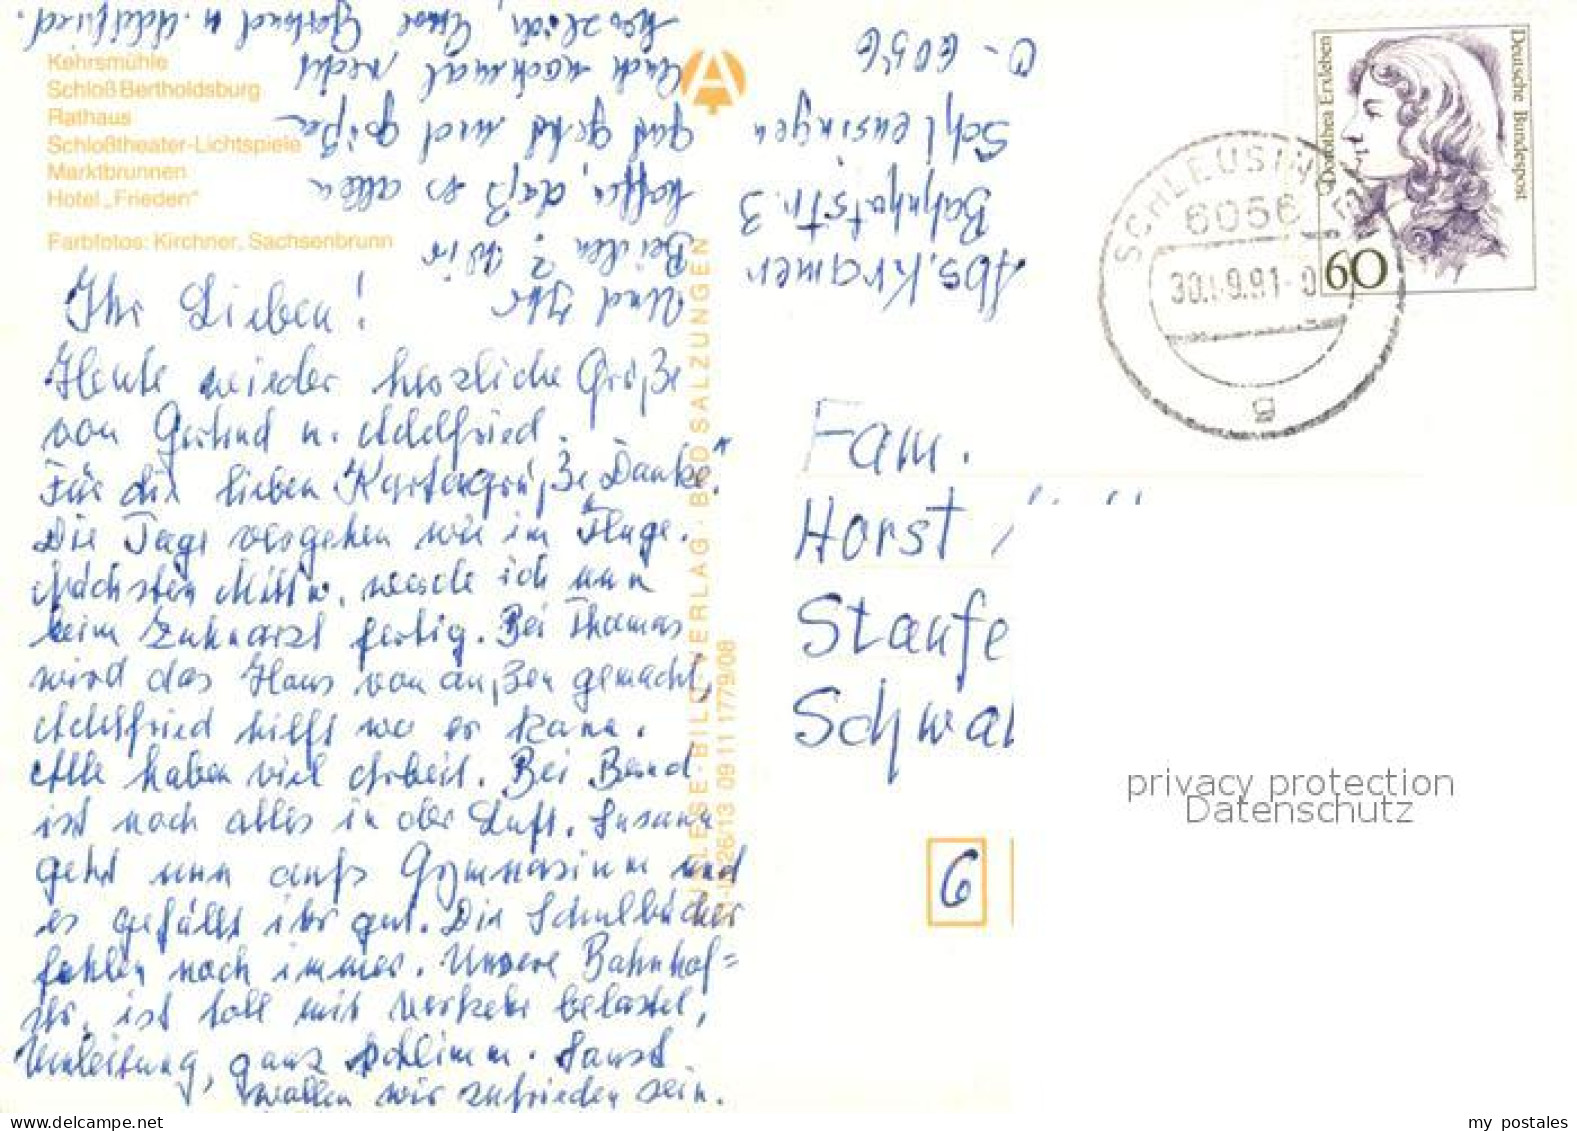 Kehrsmühle
Schloß Bertholdsburg
Rathaus
Schloßtheater-Lichtspiele
Marktbrunnen
Hotel „Frieden"
Farbfotos: Kirchner, Sachsenbrunn
Ihr Lieben!
Heute wieder herzliche Grüße
von Gertrud u. Adelfried.
Für die lieben Kartengrüße „Danke".
Die Tage vergehen wie im Fluge.
Nächsten Mittw. werde ich nun
beim Zahnarzt fertig. Bei Thomas
wird das Haus von außen gemacht,
Adelfried hilft wo er kann.
Alle haben viel Arbeit. Bei Bernd
ist noch alles in der Luft. Susann
geht nun aufs Gymnasium und
es gefällt ihr gut. Die Schulbücher
fehlen noch immer. Unsere Bahnhof=
str. ist toll mit Verkehr belastet,
Umleitung, ganz schlimm. Sonst
wollen wir zufrieden sein.
Und Ihr
Beiden? Wir
hoffen, daß es allen
gut geht und grüßen
Euch nochmal recht
herzlich, Eure Gertrud u. Adelfried.
BILD-VERLAG · BAD SALZUNGEN
26/13 09 11 1779/08
Abs. Kramer
Bahnhofstr. 3
Schleusingen
O-6056
Deutsche Bundespost
Dorothea Erxleben
60
SCHLEUSINGEN
6056
30.09.91-0
g
Fam.
Horst
Staufe
Schwa
6
privacy protection
Datenschutz
my postales